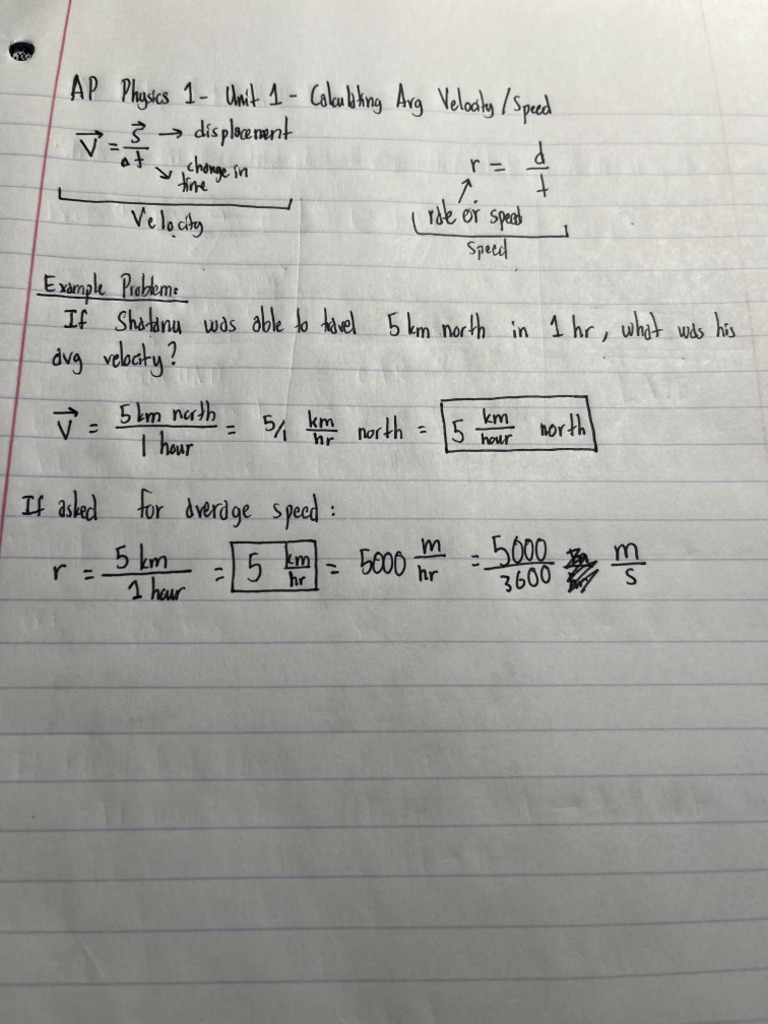 AP Physics 1 - Unit 1 - Calculating Avg Velocity/Speed
V⃗ = S⃗/Δt → displacement
↘ change in time
Velocity
r = d/t
↗ rate or speed
Speed
Example Problem:
If Shatanu was able to travel 5 km north in 1 hr, what was his
avg velocity?
V⃗ = 5 km north/1 hour = 5/1 km/hr north = 5 km/hour north
If asked for average speed:
r = 5 km/1 hour = 5 km/hr = 5000 m/hr = 5000/3600 m/s